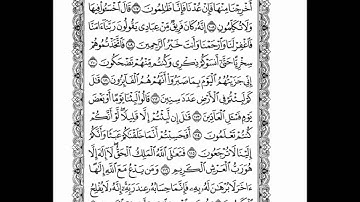 أَخْرِجْنَا مِنْهَا فَإِنْ عُدْنَا فَإِنَّا ظَٰلِمُونَ ١٠٧ قَالَ ٱخْسَـُٔوا۟ فِيهَا
وَلَا تُكَلِّمُونِ ١٠٨ إِنَّهُۥ كَانَ فَرِيقٌ مِّنْ عِبَادِى يَقُولُونَ رَبَّنَآ ءَامَنَّا
فَٱغْفِرْ لَنَا وَٱرْحَمْنَا وَأَنتَ خَيْرُ ٱلرَّٰحِمِينَ ١٠٩ فَٱتَّخَذْتُمُوهُمْ
سِخْرِيًّا حَتَّىٰٓ أَنسَوْكُمْ ذِكْرِى وَكُنتُم مِّنْهُمْ تَضْحَكُونَ ١١٠
إِنِّى جَزَيْتُهُمُ ٱلْيَوْمَ بِمَا صَبَرُوٓا۟ أَنَّهُمْ هُمُ ٱلْفَآئِزُونَ ١١١ قَٰلَ
كَمْ لَبِثْتُمْ فِى ٱلْأَرْضِ عَدَدَ سِنِينَ ١١٢ قَالُوا۟ لَبِثْنَا يَوْمًا أَوْ بَعْضَ
يَوْمٍ فَسْـَٔلِ ٱلْعَآدِّينَ ١١٣ قَٰلَ إِن لَّبِثْتُمْ إِلَّا قَلِيلًا لَّوْ أَنَّكُمْ
كُنتُمْ تَعْلَمُونَ ١١٤ أَفَحَسِبْتُمْ أَنَّمَا خَلَقْنَٰكُمْ عَبَثًا وَأَنَّكُمْ
إِلَيْنَا لَا تُرْجَعُونَ ١١٥ فَتَعَٰلَى ٱللَّهُ ٱلْمَلِكُ ٱلْحَقُّ لَآ إِلَٰهَ إِلَّا
هُوَ رَبُّ ٱلْعَرْشِ ٱلْكَرِيمِ ١١٦ وَمَن يَدْعُ مَعَ ٱللَّهِ إِلَٰهًا
ءَاخَرَ لَا بُرْهَٰنَ لَهُۥ بِهِۦ فَإِنَّمَا حِسَابُهُۥ عِندَ رَبِّهِۦٓ إِنَّهُۥ لَا يُفْلِحُ